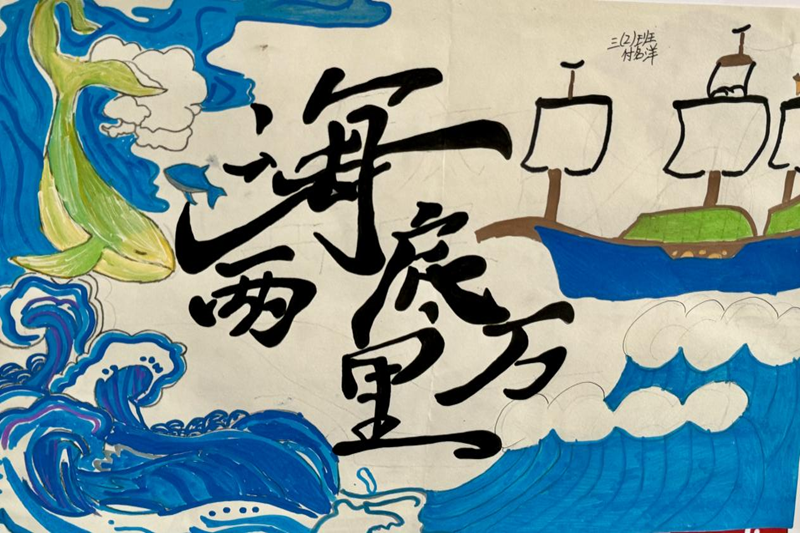 海底
两万里
三(2)班
付名洋